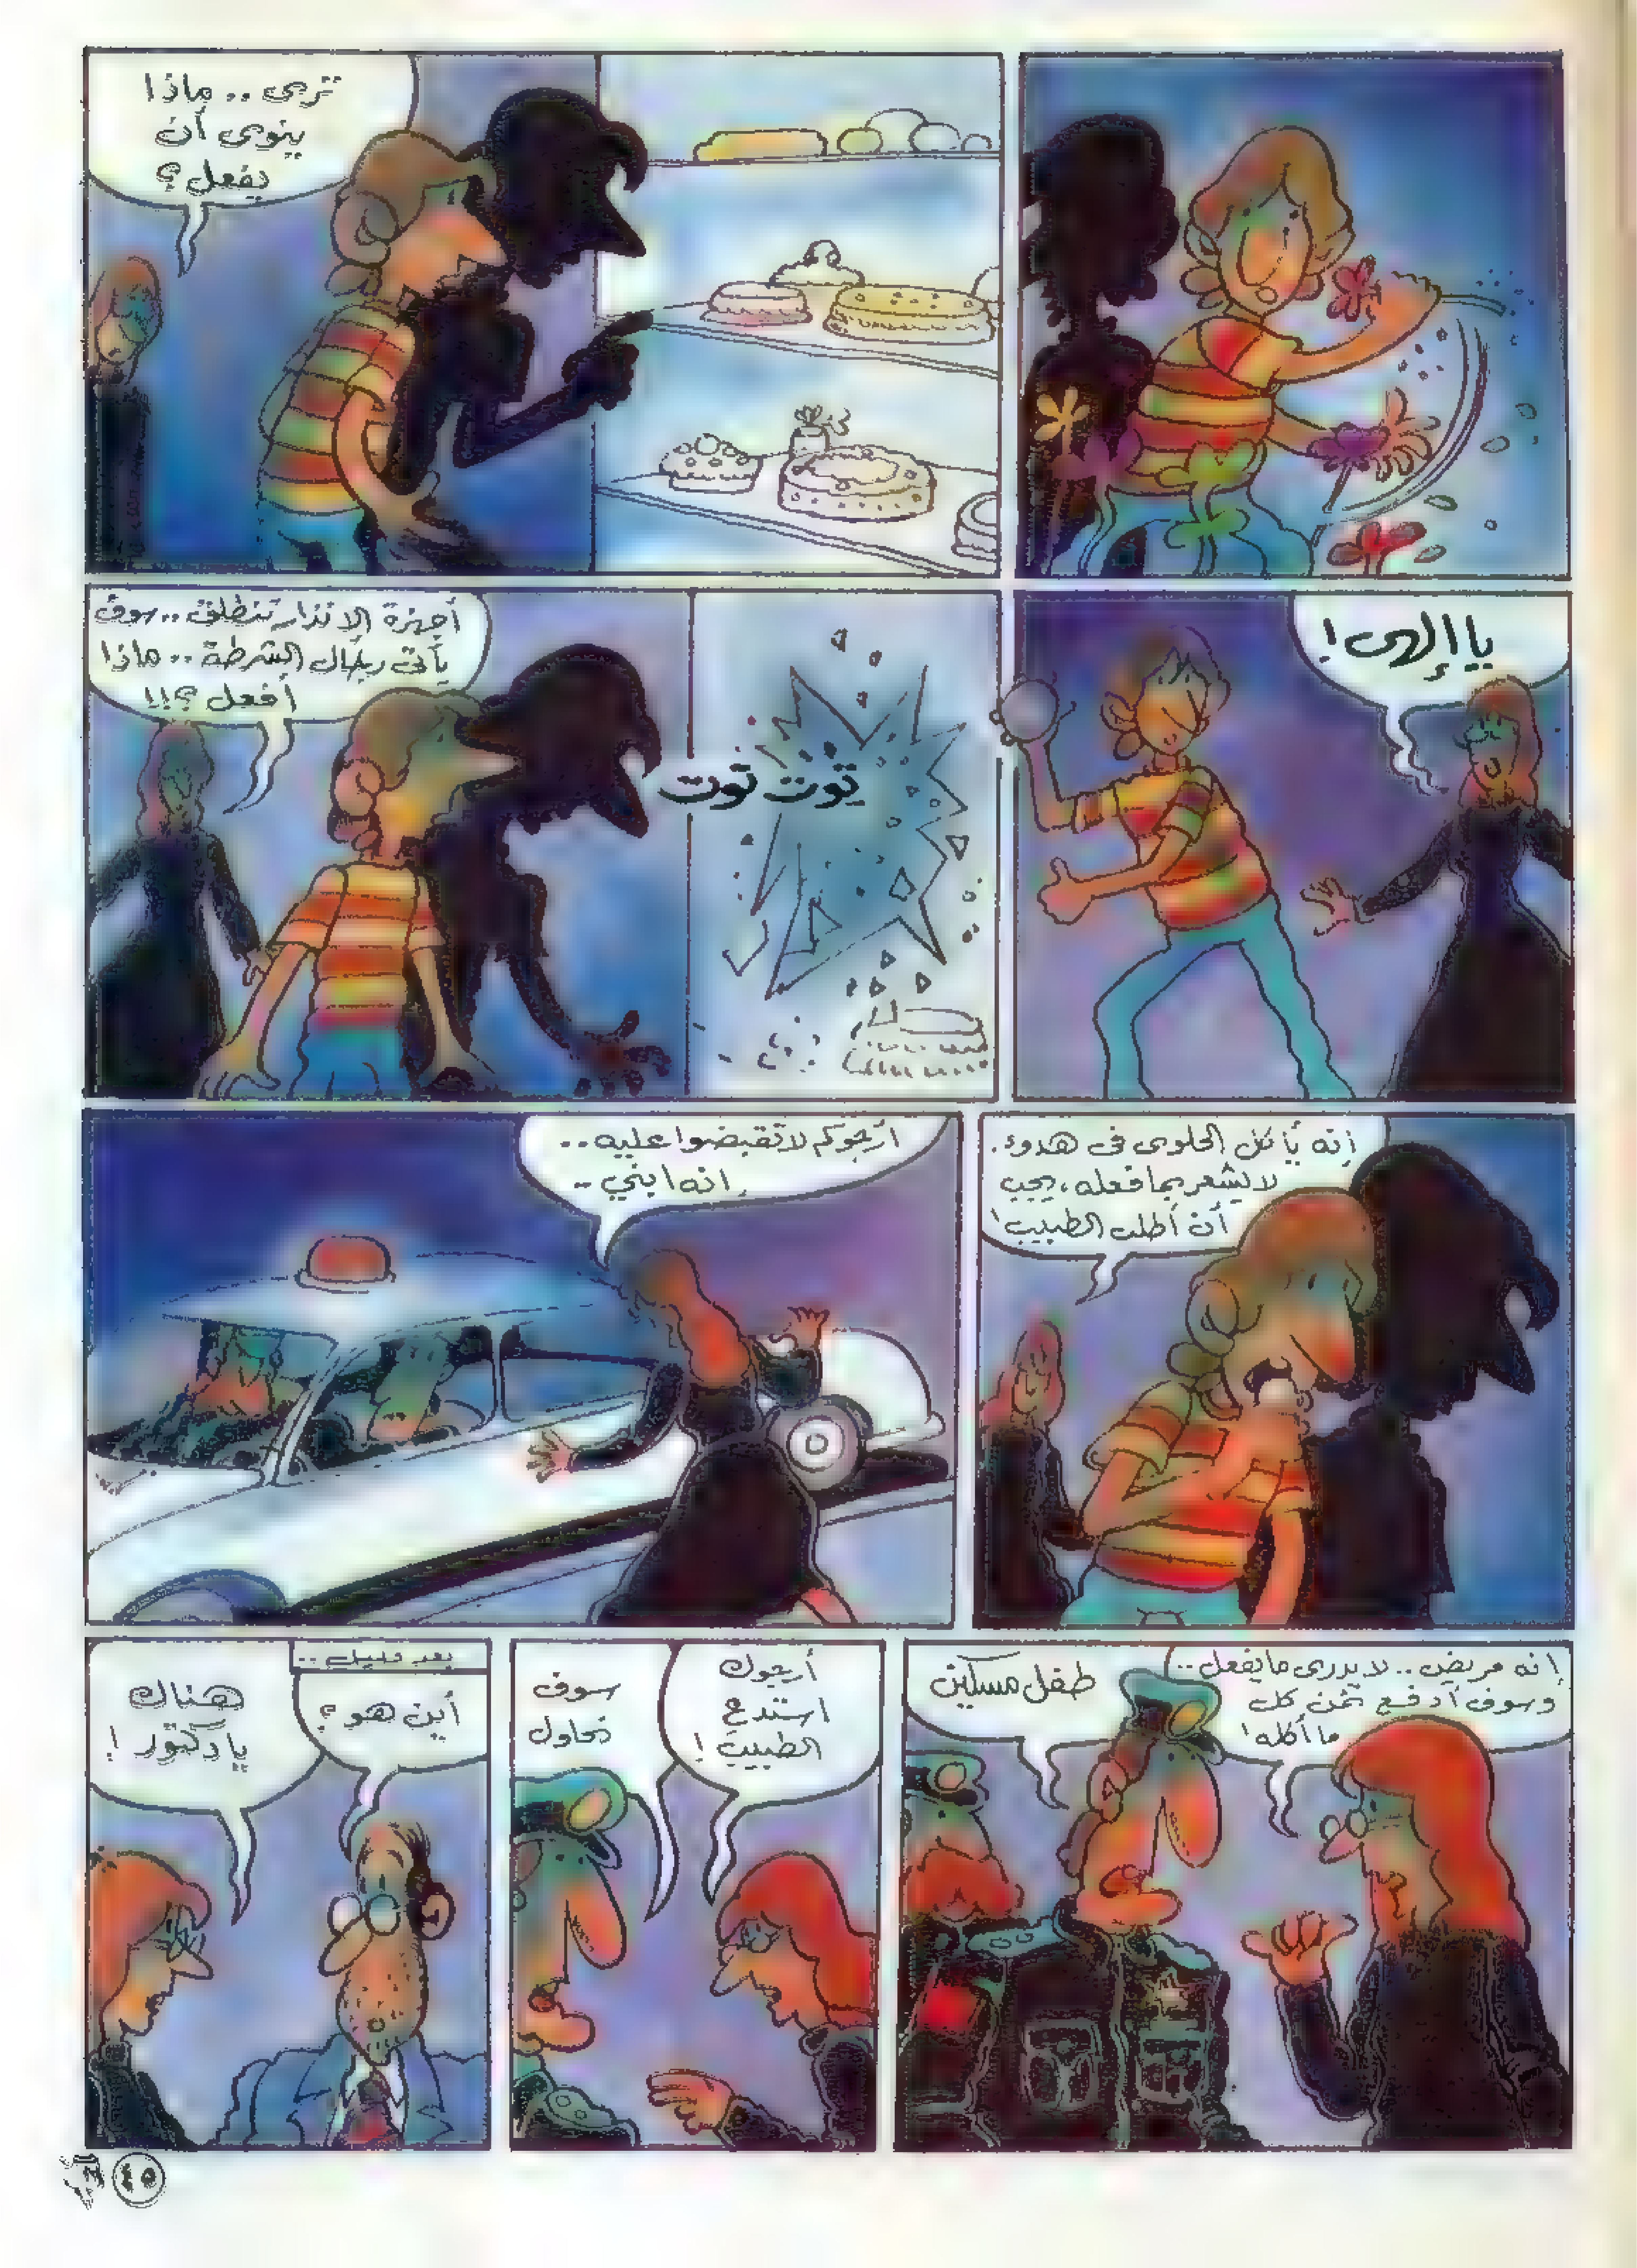 ترى .. ماذا
ينوى أن
يفعل ؟
يا إلهى !
توت توت
أجهزة الإنذار تنطلق .. سوف
يأتى رجال الشرطة .. ماذا
أفعل ؟!!
إنه يأكل الحلوى فى هدوء.
لا يشعر بما فعله ، يجب
أن أطلب الطبيب !
أرجوكم لا تقبضوا عليه ..
إنه ابني ..
إنه مريض .. لا يدرى ما يفعل ..
وسوف أدفع ثمن كل
ما أكله !
طفل مسكين
أرجوك
استدع
الطبيب !
سوف
نحاول
بعد قليل ..
أين هو ؟
هناك
يا دكتور !
٤٥